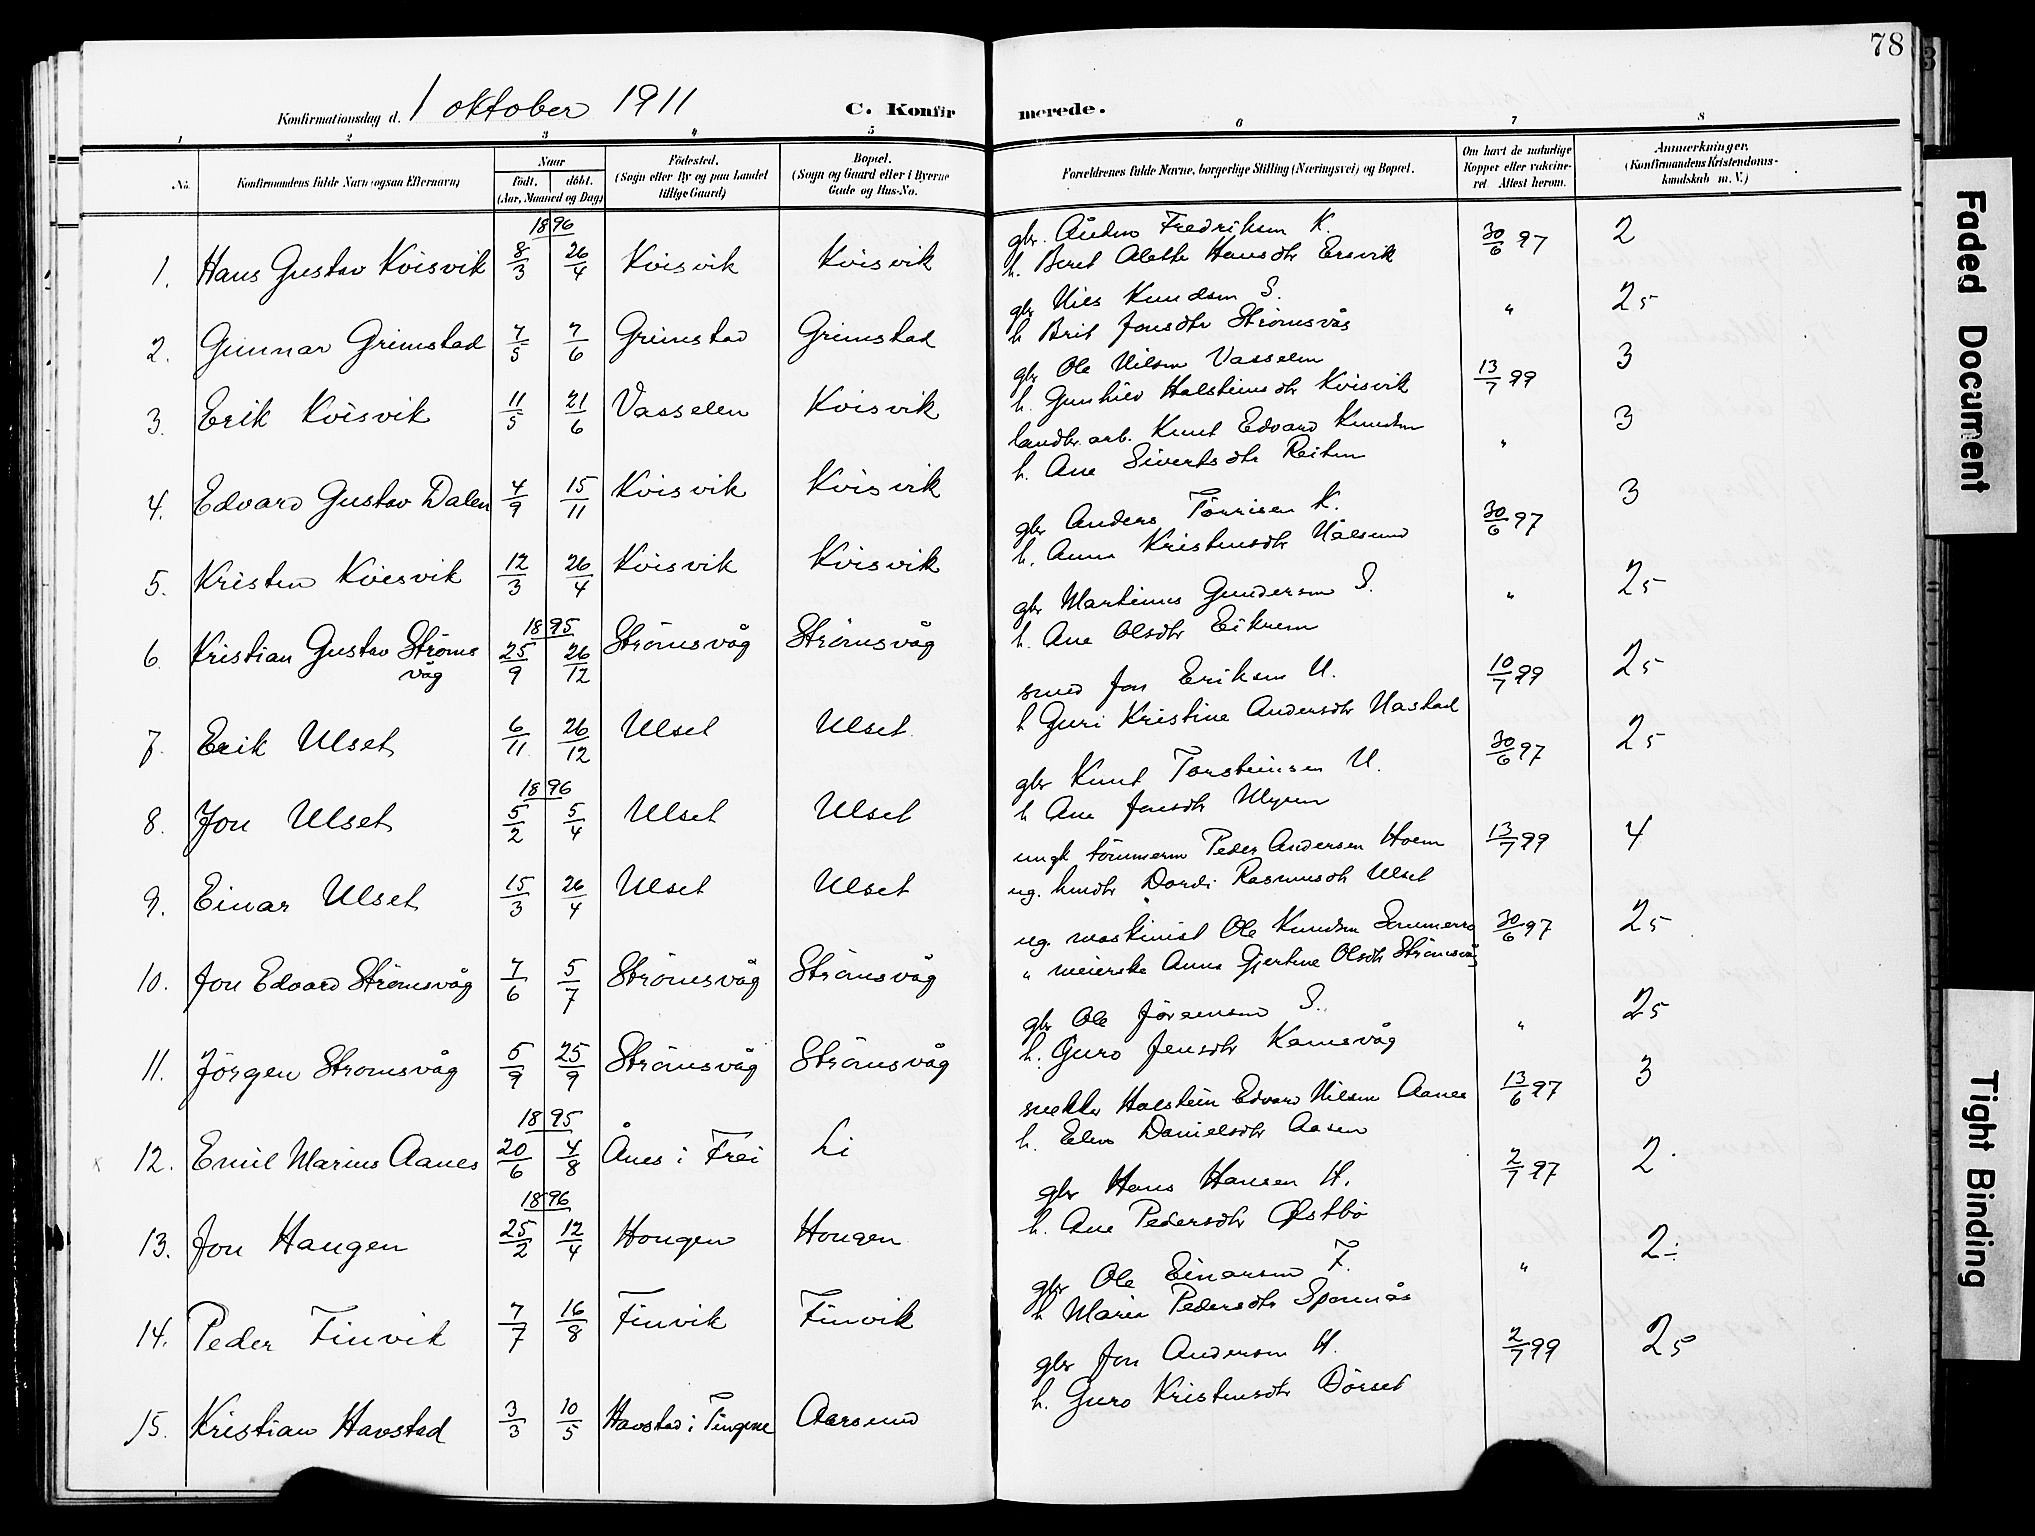 78
Konfirmationsdag d. 1 oktober 1911 C. Konfirmerede.
1 2 3 4 5 6 7 8
No. Konfirmandens fulde Navn (ogsaa Efternavn) Naar født. døbt. (Aar, Maaned og Dag) Fødested. (Sogn eller By og paa Landet tillige Gaard) Bopæl. (Sogn og Gaard eller i Byerne Gade og Hus-No. Forældrenes fulde Navne, borgerlige Stilling (Næringsvei) og Bopæl. Om havt de naturlige Kopper eller vakcineret Attest herom. Anmærkninger. (Konfirmandens Kristendomskundskab m. V.)
1896
1. Hans Gustav Kvisvik 8/3 26/4 Kvisvik Kvisvik gbr. Anders Fredriksen K. 30/6 97 2
h. Beret Alette Hansdtr Ersvik
2. Gunnar Grimstad 7/5 7/6 Grimstad Grimstad gbr Nils Knudsen S. " 25
h Brit Jonsdtr Strømsvåg
3. Erik Kvisvik 11/5 21/6 Vasselen Kvisvik gbr Ole Nilsen Vasselen 13/7 99 3
h. Gunhild Halsteinsdtr Kvisvik
4. Edvard Gustav Dalen 4/9 15/11 Kvisvik Kvisvik landbr. arb. Knut Edvard Knudsen " 3
h. Ane Sivertsdtr Reiten
5. Kristen Kvisvik 12/3 26/4 Kvisvik Kvisvik gbr Anders Tørrisen K. 30/6 97 3
h. Anne Kristensdtr Nålsund
1895
6. Kristian Gustav Strømsvåg 25/9 26/12 Strömsvåg Strömsvåg gbr Martinus Gundersen S. " 25
h. Ane Olsdtr Eikrem
7. Erik Ulset 6/11 26/12 Ulset Ulset smed Jon Eriksen U. 10/7 99 25
h Guri Kristine Andersdtr Nastad
1896
8. Jon Ulset 5/2 5/4 Ulset Ulset gbr Knut Torsteinsen U. 30/6 97 25
h Ane Jonsdtr Myren
9. Einar Ulset 15/3 26/4 Ulset Ulset ungk tömmerm Peder Andersen Hoem 13/7 99 4
ug. Dordi Rasmusdtr Ulset
10. Jon Edvard Strømsvåg 7/6 5/7 Strömsvåg Strömsvåg ug. maskinist Ole Knudsen 30/6 97 25
" meierske Anne Gjertine Olsdtr Strömsvåg
11. Jörgen Stromsvåg 5/9 25/9 Strömsvåg Strömsvåg gbr Ole Jörgensen S. " 25
h. Guro Jensdtr Kamsvåg
1895
12. Emil Marius Aanes 20/6 4/8 Ånes i Frei Li snekker Halstein Edvard Nilsen Aanes 13/6 97 3
h. Elen Danielsdtr Aasen
1896
13. Jon Haugen 25/2 12/4 Hougen Hougen gbr Hans Hansen H. 2/7 97 2
h. Ane Pedersdtr Østbö
14. Peder Finvik 7/7 16/8 Finvik Finvik gbr Ole Einarsen F. " 2
h Marie Pedersdtr
15. Kristian Havstad 3/3 10/5 Havstad i Tingvoll Aarsund gbr Jon Andersen H. 2/7 99 25
h. Guro Kristensdtr Dörset
Faded Document
Tight Binding